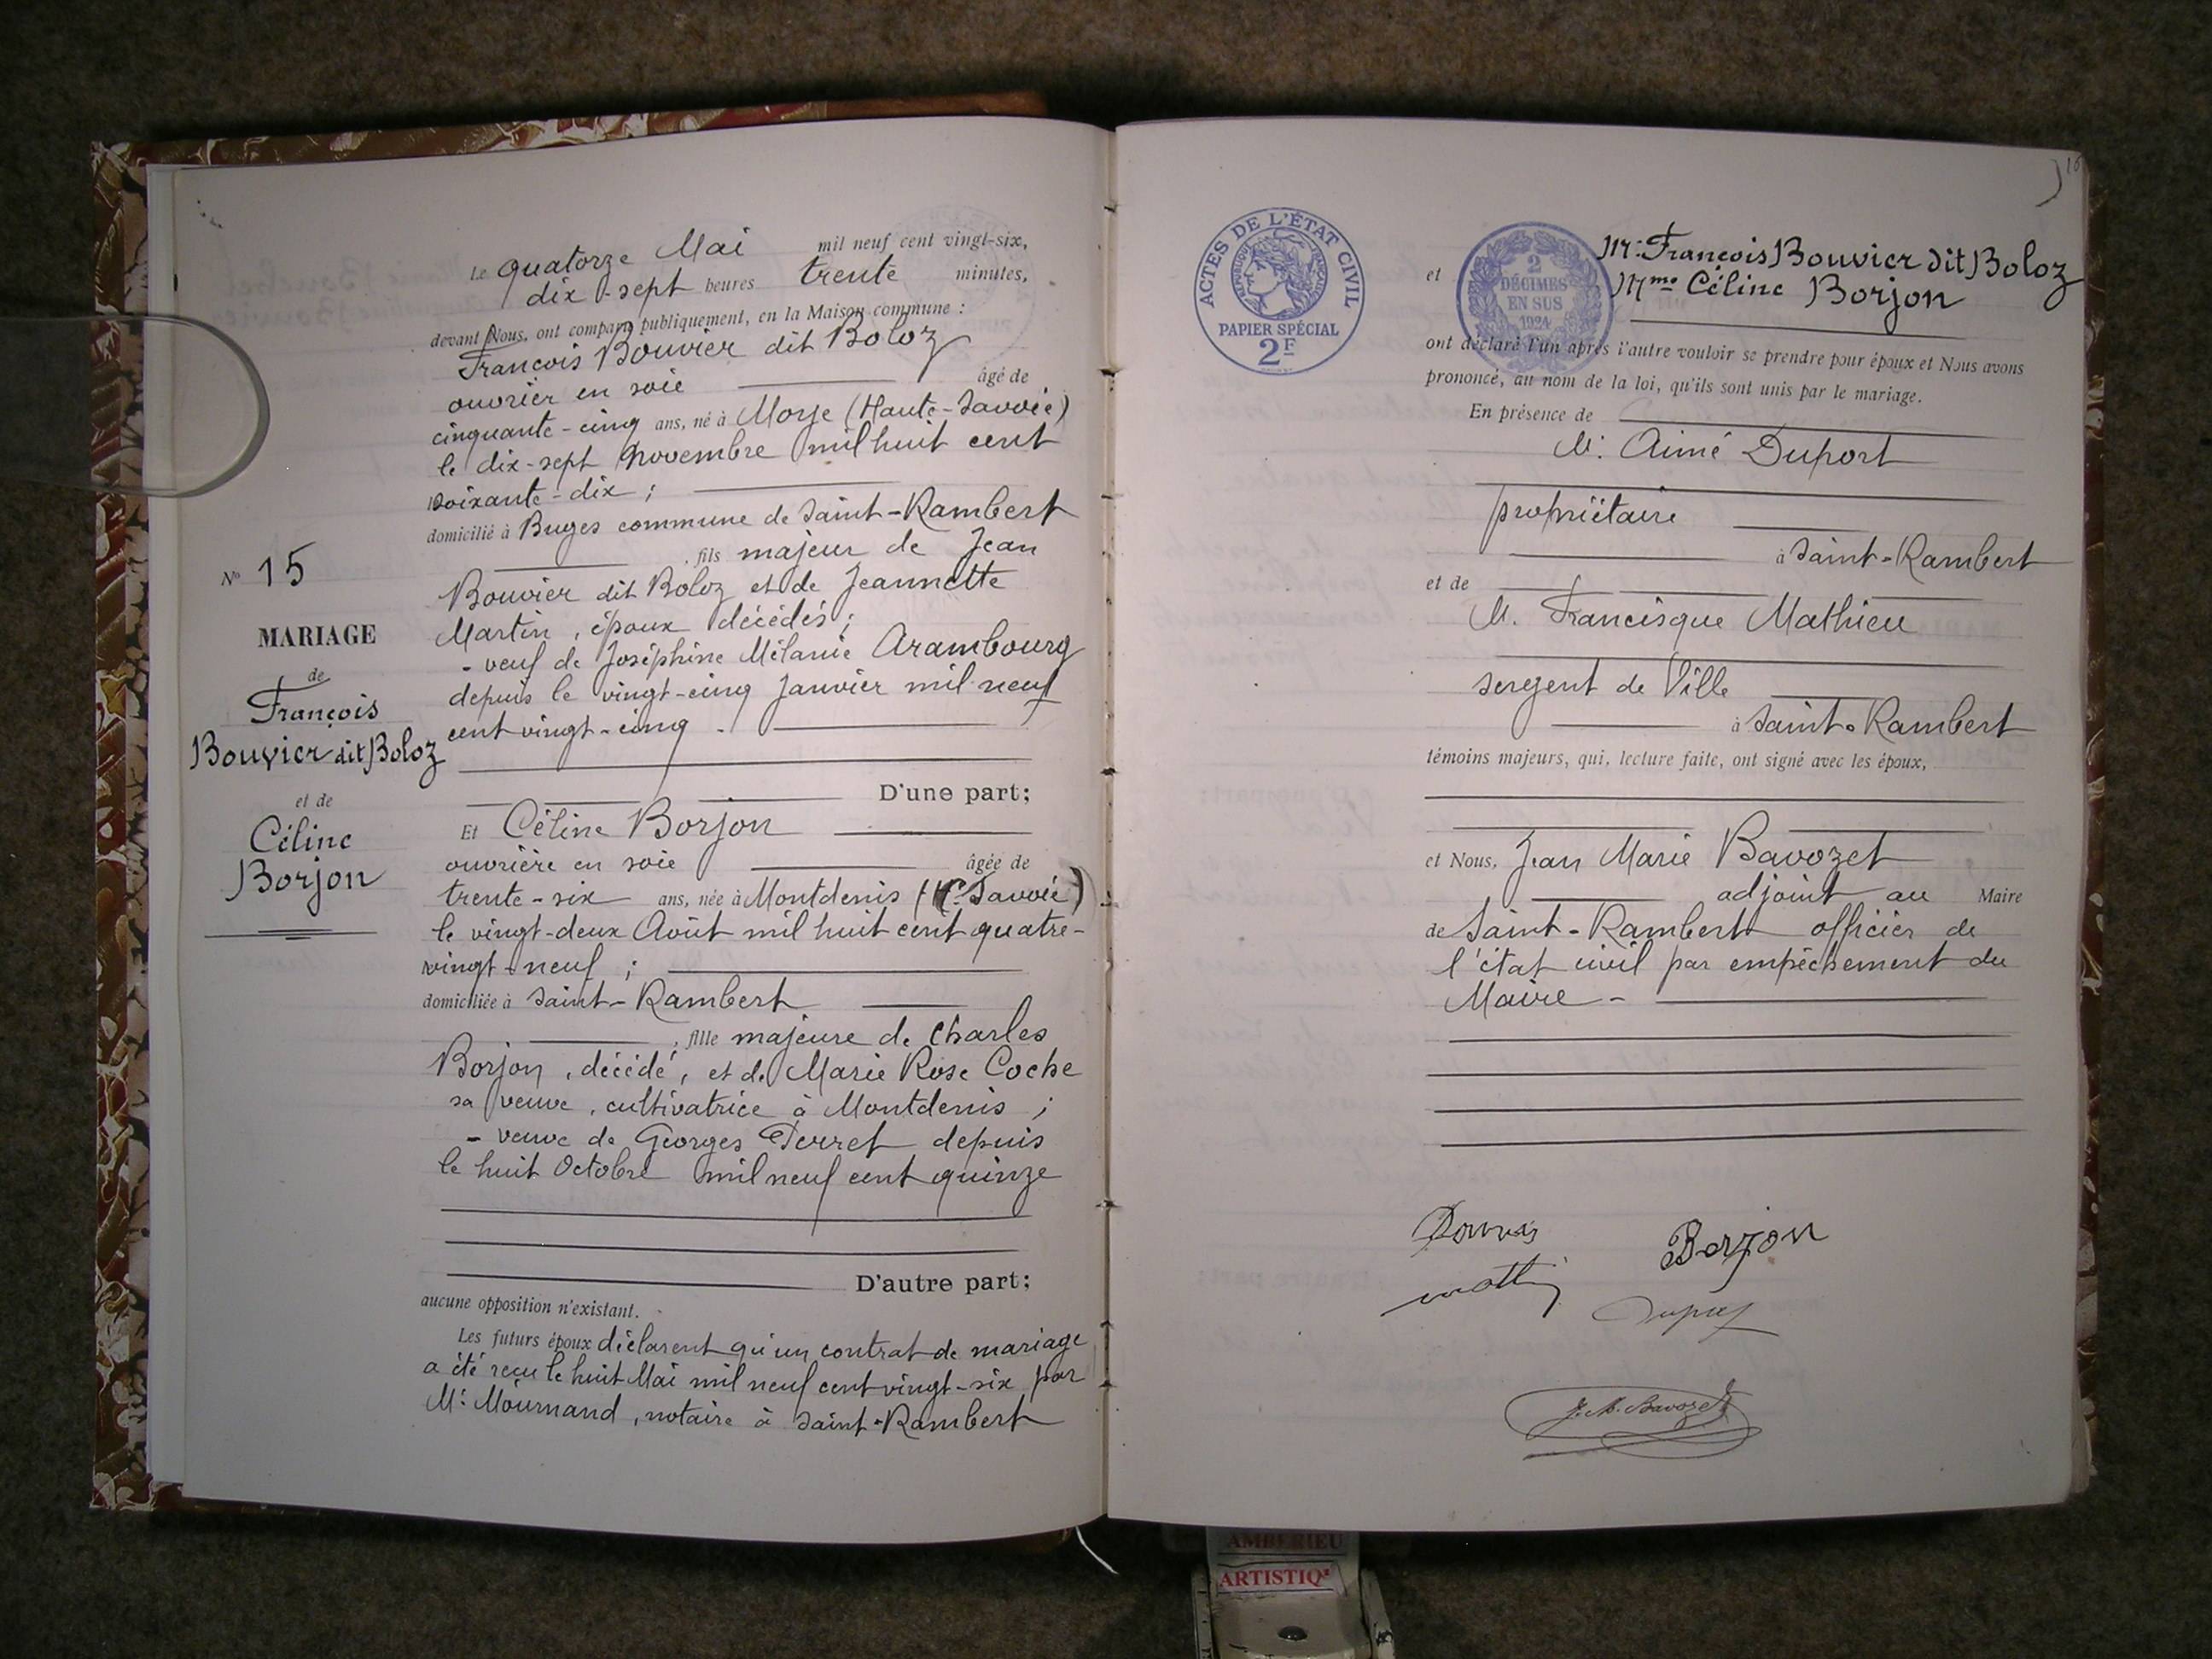 Le quatorze Mai mil neuf cent vingt-six,
dix-sept heures trente minutes,
devant Nous, ont comparu publiquement, en la Maison commune :
François Bouvier dit Boloz
ouvrier en soie âgé de
cinquante-cinq ans, né à Morge (Haute-Savoie)
le dix-sept Novembre mil huit cent
soixante-dix ;
domicilié à Buges commune de Saint-Rambert
, fils majeur de Jean
Bouvier dit Boloz et de Jeannette
Martin, époux décédés ;
- veuf de Joséphine Mélanie Arambourg
depuis le vingt-cinq Janvier mil neuf
cent vingt-cinq.
D'une part;
Et Céline Borjon
ouvrière en soie âgée de
trente-six ans, née à Montdenis (Savoie)
le vingt-deux Août mil huit cent quatre-
vingt-neuf ;
domiciliée à Saint-Rambert
, fille majeure de Charles
Borjon, décédé, et de Marie Rose Coche
sa veuve, cultivatrice à Montdenis ;
- veuve de Georges Perret depuis
le huit Octobre mil neuf cent quinze
D'autre part;
aucune opposition n'existant.
Les futurs époux déclarent qu'un contrat de mariage
a été reçu le huit Mai mil neuf cent vingt-six par
Me Mournand, notaire à Saint-Rambert
No 15
MARIAGE
de
François
Bouvier dit Boloz
et de
Céline
Borjon
16
ACTES DE L'ÉTAT CIVIL
RÉPUBLIQUE FRANÇAISE
PAPIER SPÉCIAL
2F
2
DÉCIMES
EN SUS
1924
et Mr François Bouvier dit Boloz
Mme Céline Borjon
ont déclaré l'un après l'autre vouloir se prendre pour époux et Nous avons
prononcé, au nom de la loi, qu'ils sont unis par le mariage.
En présence de
M. Aimé Duport
propriétaire
à Saint-Rambert
et de
M. Francisque Mathieu
sergent de Ville
à Saint-Rambert
témoins majeurs, qui, lecture faite, ont signé avec les époux,
et Nous, Jean Marie Bavozet
adjoint au Maire
de Saint-Rambert officier de
l'état civil par empêchement du
Maire -
Borjon
J. M. Bavozet
AMBERIEU
ARTISTIQ